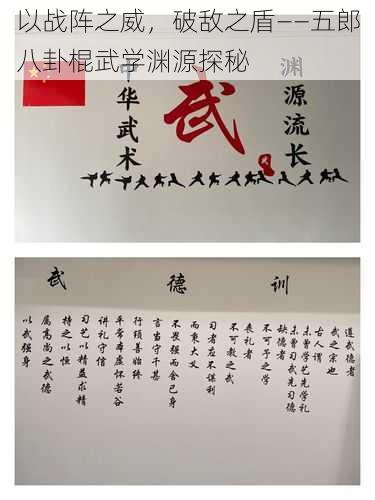 以战阵之威，破敌之盾——五郎
八卦棍武学渊源探秘
中华武术
武
渊源流长
武德训
道武德者
武之宗也
古人谓
未曾学艺先学礼
未曾习武先习德
缺德者
不可予之学
丧礼者
不可教之武
习者应不谋利
而秉大义
不畏强而舍己身
言当守千
行须善始终
讲礼守信
平常本虚怀若谷
习艺以精益求精
持之以恒
属高尚之武德
以武强身